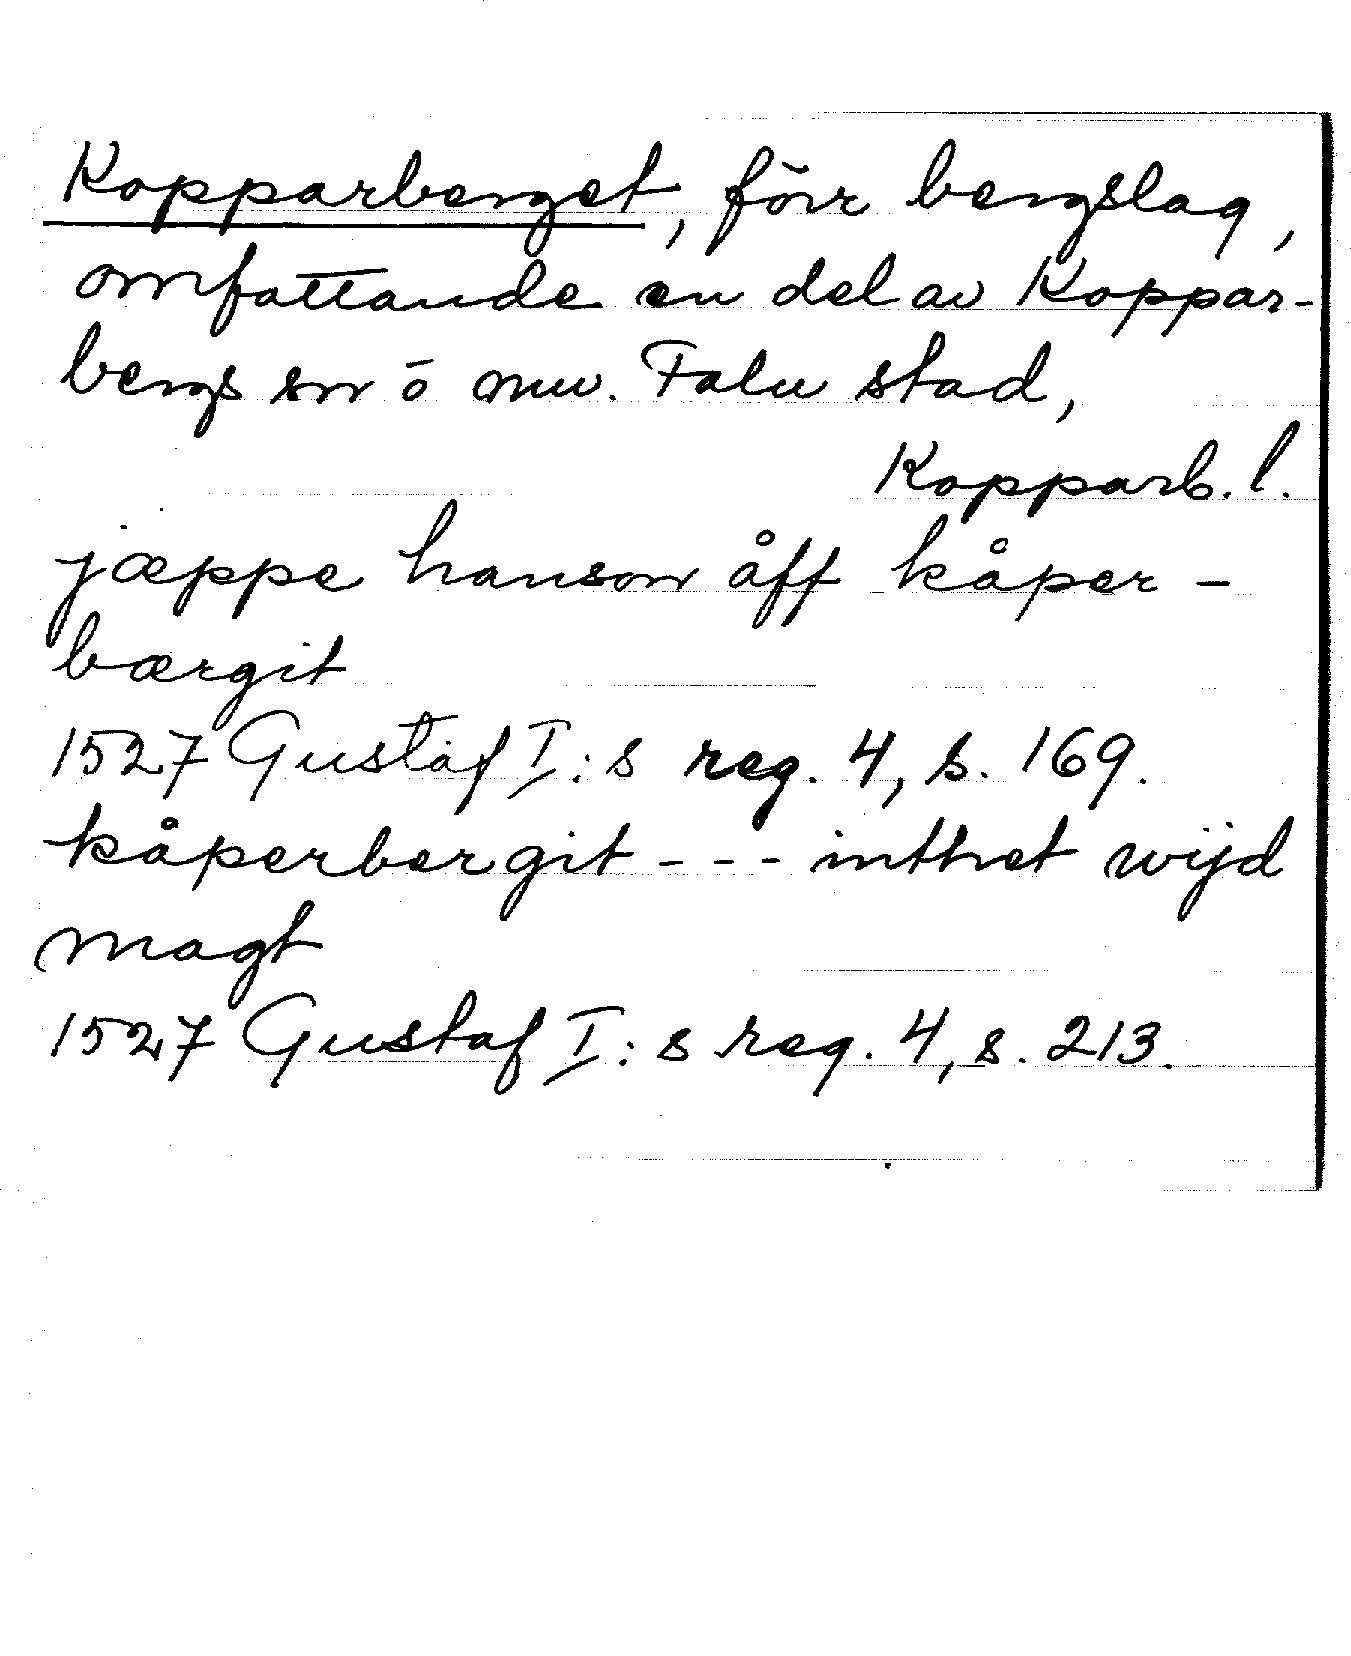 Kopparberget, förr bergslag,
omfattande en del av Koppar-
bergs sn o nuv. Falu stad,
Kopparb. l.
jæppe hanson åff kåper-
bærgit
1527 Gustaf I:s reg. 4, s. 169.
kåperbergit --- inthet wijd
magt
1527 Gustaf I:s reg. 4, s. 213.